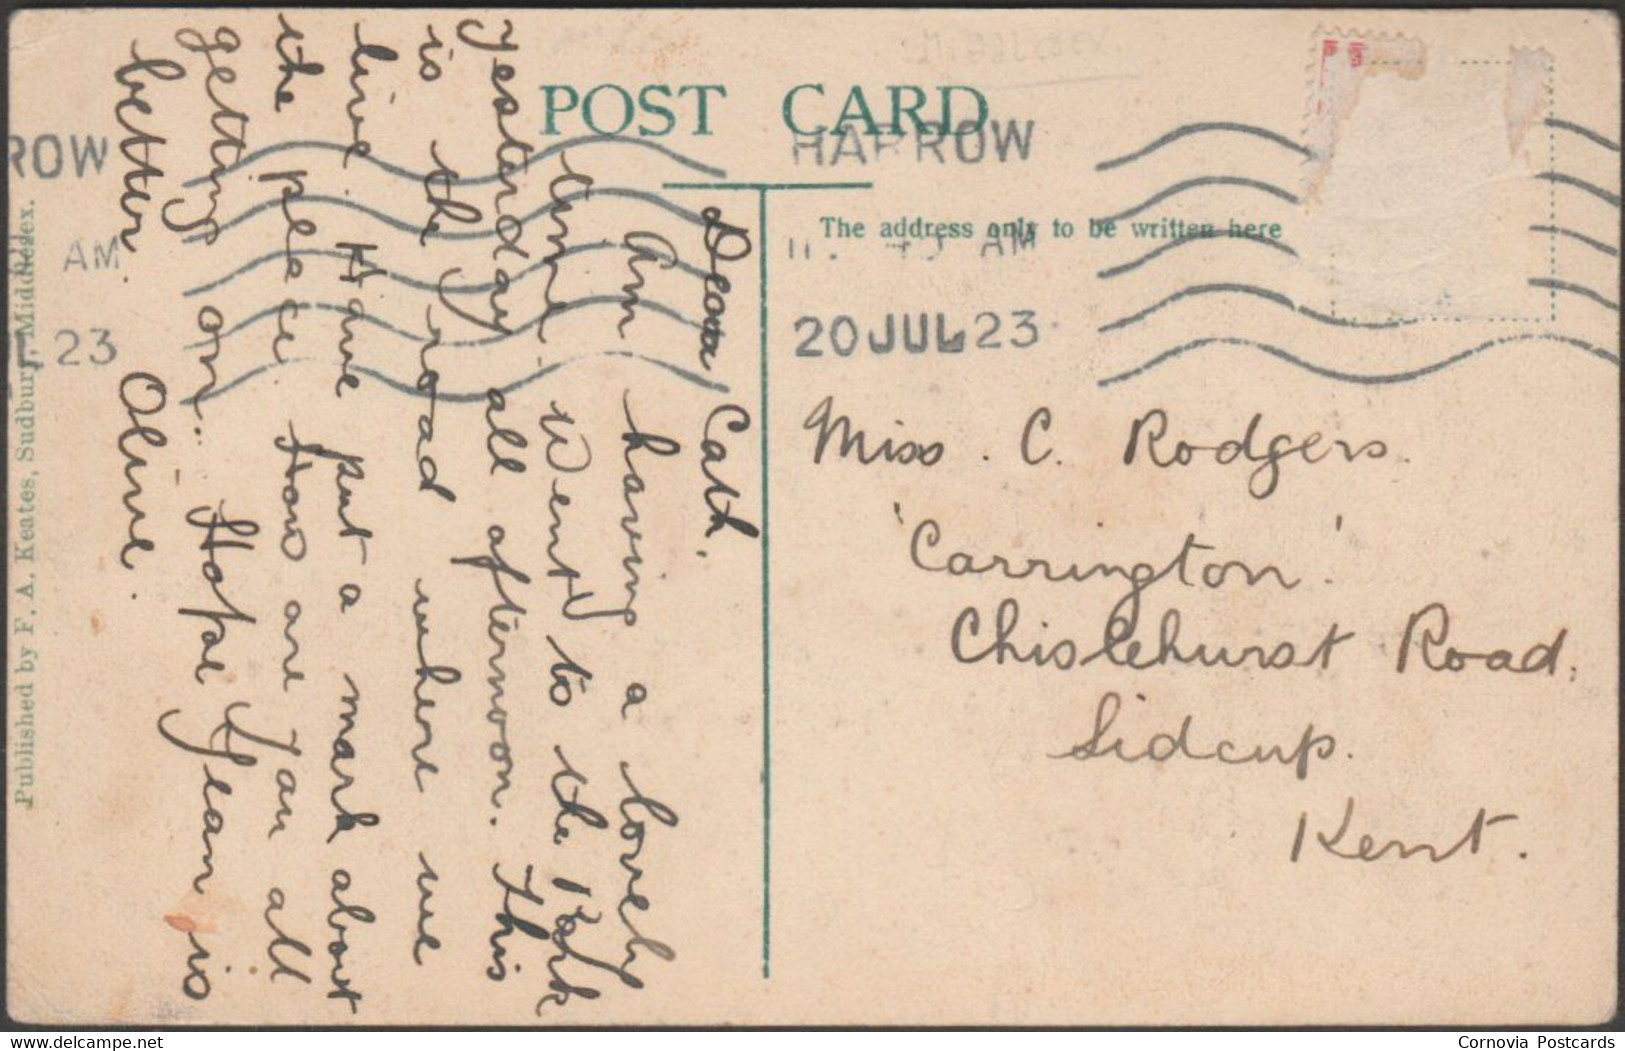 POST CARD
HARROW
AM
20 JUL 23
The address only to be written here
Dear Cath,
Am having a lovely
time. Went to the Park
yesterday all afternoon. This
is the road where we
live. Have put a mark about
the place How are you all
getting on. Hope Jean is
better. Olive.
Miss. C. Rodgers.
'Carrington'.
Chislehurst Road,
Sidcup.
Kent.
ROW
AM
23
Published by F. A. Keates, Sudbury, Middlesex.
delcampe.net
Cornovia Postcards